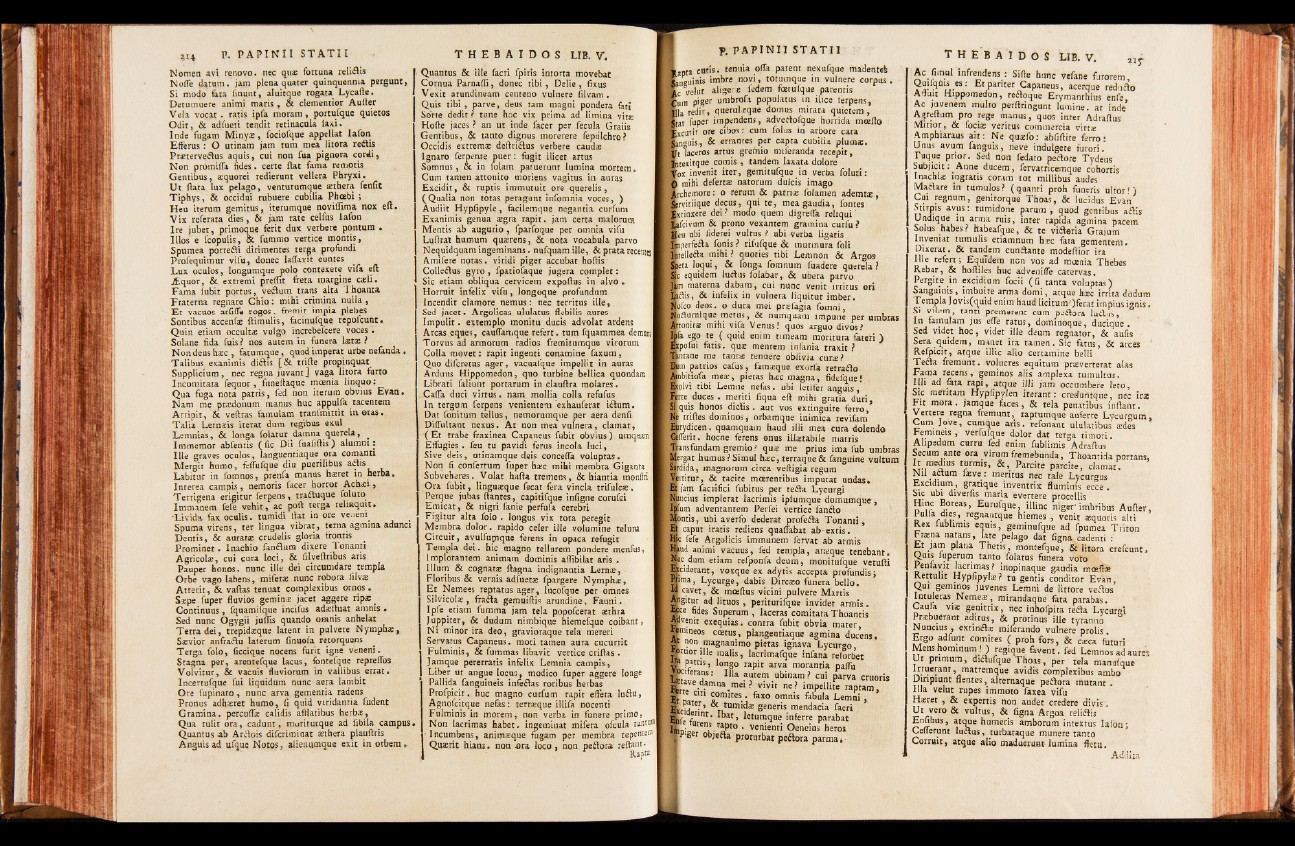 214 P. PAPINII STATII
Nomen avi renovo. nec quæ fortuna relictis
Nosse datum. jam plena quater quinquennia pergunt,
Si modo fata sinunt, aluitque rogata Lycaste.
Detumuere animi maris, & clementior Auster
Vela vocat. ratis ipsa moram, portusque quietos
Odit, & adsueti tendit retinacula saxi.
Inde fugam Minyæ, sociosque appellat Iason
Efferus: O utinam jam tum mea litora rectis
Prætervectus aquis, cui non sua pignora cordi,
Non promissa fides. certe stat fama remotis
Gentibus, æquorei redierunt vellera Phryxi.
Ut stata lux pelago, venturumque æthera sensit
Tiphys, & occidui rubuere cubilia Phœbi;
Heu iterum gemitus, iterumque novissima nox est.
Vix reserata dies, & jam rate celsus Iason
Ire jubet, primoque ferit dux verbere pontum.
Illos e scopulis, & summo vertice montis,
Spumea porrecti dirimentes terga profundi
Prosequimur visu, donec lassavit euntes
Lux oculos, longumque polo contexere visa est
Æquor, & extremi pressit freta margine cæli.
Fama subit portus, vectum trans alta Thoanta
Fraterna regnare Chio: mihi crimina nulla,
Et vacuos arsisse rogos. fremit impia plebes
Sontibus accensæ stimulis, facinusque reposcunt.
Quin etiam occultæ vulgo increbescere voces.
Solane fida suis? nos autem in funera lætæ?
Non deus hæc, fatumque, quod imperat urbe nefanda.
Talibus exanimis dictis [& triste propinquat
Supplicium, nec regna juvant] vaga litora furto
Incomitata sequor, funestaque mœnia linquo:
Qua fuga nota patris, sed non iterum obvius Evan.
Nam me prædonum manus huc appulsa tacentem
Arripit, & vestras famulam transmittit in oras.
Talia Lernæis iterat dum regibus exul
Lemnias, & longa solatur damna querela,
Immemor absentis (sic Dii suasistis) alumni:
Ille graves oculos, languentiaque ora comanti
Mergit humo, fessusque diu puerilibus actis
Labitur in somnos, prensa manus hæret in herba.
Interea campis, nemoris sacer horror Achæi,
Terrigena erigitur serpens, tractuque soluto
Immanem sese vehit, ac post terga relinquit.
Livida fax oculis. tumidi stat in ore veneni
Spuma virens, ter lingua vibrat, terna agmina adunci
Dentis, & auratæ crudelis gloria frontis
Prominet. Inachio sanctum dixere Tonanti
Agricolæ, cui cura loci, & silvestribus aris
Pauper honos. nunc ille dei circumdare templa
Orbe vago labens, miseræ nunc robora silvæ
Atterit, & vastas tenuat complexibus ornos.
Sæpe super fluvios geminæ jacet aggere ripæ
Continuus, squamisque incisus adæstuat amnis.
Sed nunc Ogygii jussis quando omnis anhelat
Terra dei, trepidæque latent in pulvere Nymphæ,
Sævior anfractu laterum sinuosa retorquens
Terga solo, siccique nocens furit igne veneni.
Stagna per, arentesque lacus, fontesque repressos
Volvitur, & vacuis fluviorum in vallibus errat.
Incertusque sui liquidum nunc aera lambit
Ore supinato, nunc arva gementia radens
Pronus adhæret humo, si quid viridantia sudent
Gramina. percussæ calidis afflatibus herbæ,
Qua tulit ora, cadunt, moriturque ad sibila campus.
Quantus ab Arctois discriminat æthera plaustris
Anguis ad usque Notos, alienumque exit in orbem.
THEBAIDOS LIB. V.
Quantus & ille sacri spiris intorta movebat
Cornua Parnassi, donec tibi, Delie, fixus
Vexit arundineam centeno vulnere silvam.
Quis tibi, parve, deus tam magni pondera fati
Sorte dedit? tune hoc vix prima ad limina vitæ
Hoste jaces? an ut inde sacer per secula Graiis
Gentibus, & tanto dignus morerere sepulchro?
Occidis extremæ destrictus verbere caudæ
Ignaro serpense puer: fugit ilicet artus
Somnus, & in solam patuerunt lumina mortem.
Cum tamen attonito moriens vagitus in auras
Excidit, & ruptis immutuit ore querelis,
(Qualia non totas peragunt insomnia voces,)
Audiit Hypsipyle, facilemque negantia cursum
Exanimis genua ægra rapit. jam certa malorum
Mentis ab augurio, sparsoque per omnia visu
Lustrat humum quærens, & nota vocabula parvo
Nequidquam ingeminans. nusquam ille, & prata recentes
Amisere notas. viridi piger accubat hostis
Collectus gyro, spatiosaque jugera complet:
Sic etiam obliqua cervicem expostus in alvo.
Horruit infelix visu, longoque profundum
Incendit clamore nemus: nec territus ille,
Sed jacet. Argolicas ululatus flebilis aures
Impulit. extemplo monitu ducis advolat ardens
Arcas eques, causamque refert. tum squammea demum
Torvus ad armorum radios fremitumque virorum
Colla movet: rapit ingenti conamine saxum,
Quo discretus ager, vacuasque impellit in auras
Arduus Hippomedon, quo turbine bellica quondam
Librati saliunt portarum in claustra molares.
Cassa duci virtus. nam mollia colla refusus
In tergum serpens venientem exhauserat ictum.
Dat sonitum tellus, nemorumque per aera densi
Dissultant nexus. At non mea vulnera, clamat,
(Et trabe fraxinea Capaneus subit obvius) umquam
Effugies. seu tu pavidi ferus incola luci,
Sive deis, utinamque deis concessa voluptas.
Non si consertum super hæc mihi membra Giganta
Subveheres. Volat hasta tremens, & hiantia monstri
Ora subit, linguæque secat fera vincla trisulcæ.
Perque jubas stantes, capitisque insigne corusci
Emicat, & nigri sanie perfusa cerebri
Figitur alta solo. longus vix tota peregit
Membra dolor. rapido celer ille volumine telum
Circuit, avulsumque ferens in opaca refugit
Templa dei. hic magno tellurem pondere mensus,
Implorantem animam dominis assibilat aris.
Illum & cognatæ stagna indignantia Lernæ,
Floribus & vernis adsuetæ spargere Nymphæ,
Et Nemees reptatus ager, lucosque per omnes
Silvicolæ, fracta gemuistis arundine, Fauni.
Ipse etiam summa jam tela poposcerat æthra
Juppiter, & dudum nimbique hiemesque coibant,
Ni minor ira deo, gravioraque tela mereri
Servatus Capaneus. moti tamen aura cucurrit
Fulminis, & summas libavit vertice cristas.
Jamque pererratis infelix Lemnia campis,
Liber ut angue locus, modico super aggere longe
Pallida sanguineis infectas roribus herbas
Prospicit. huc magno cursum rapit effera luctu,
Agnoscitque nefas: terræque illisa nocenti
Fulminis in morem, non verba in funere primo,
Non lacrimas habet. ingeminat misera oscula tantum
Incumbens, animæque fugam per membra tepentem
Quærit hians. non ora loco, non pectora restant.
Rapta
P. PAPINII STATII
Rapta cutis. tenuia ossa patent nexusque madentes
Sanguinis imbre novi, totumque in vulnere corpus.
Ac velut aligeræ sedem fœtusque parentis
Cum piger umbrosa populatus in ilice serpens,
Illa redit, querulæque domus mirata quietem,
Stat super impendens, advectosque horrida mœsto
Excutit ore cibos: cum solus in arbore cara
Sanguis, & errantes per capta cubilia plumæ.
Ut laceros artus gremio miseranda recepit,
Intexitque comis, tandem laxata dolore
Vox invenit iter, gemitusque in verba soluti:
O mihi desertæ natorum dulcis imago
Archemore: o rerum & patriæ solamen ademtæ,
Servitiique decus, qui te, mea gaudia, sontes
Extinxere dei? modo quem digressa reliqui
Lascivum & prono vexantem gramina cursu?
Heu ubi siderei vultus? ubi verba ligatis
Imperfecta sonis? risusque & murmura soli
Intellecta mihi? quoties tibi Lemnon & Argos
Sueta loqui, & longa somnum suadere querela?
Sic equidem luctus solabar, & ubera parvo
Jam materna dabam, cui nunc venit irritus orbi
Lactis, & infelix in vulnera liquitur imber.
Nosco deos. o dura mei præsagia somni,
Nocturnique metus, & numquam impune per umbras
Attonitæ mihi visa Venus! quos arguo divos?
Ipsa ego te (quid enim timeam moritura fateri)
Exposui fatis. quæ mentem insania traxit?
Tantane me tantæ tenuere oblivia curæ?
Dum patrios casus, famæque exorsa retracto
Ambitiosa meæ, pietas hæc magna, fidesque!
Exolvi tibi Lemne nefas. ubi letifer anguis,
Ferte duces. meriti siqua est mihi gratia duri,
Si quis honos dictis. aut vos extinguite ferro,
Ne tristes dominos, orbamque inimica revisam
Eurydicen. quamquam haud illi mea cura dolendo
Cesserit. hocne ferens onus illætabile matris
Transfundam gremio? quæ me prius ima sub umbras
Mergat humus? Simul hæc, terraque & sanguine vultum
Sordida, magnorum circa vestigia regum
Vertitur, & tacite mœrentibus imputat undas.
Et jam sacrifici subitus per tecta Lycurgi
Nuncius implerat lacrimis ipsumque domumque,
Ipsum adventantem Persei vertice sancto
Montis, ubi averso dederat prosecta Tonanti,
Et caput iratis rediens quassabat ab extis.
Hic sese Argolicis immunem servat ab armis
Haud animi vacuus, sed templa, aræque tenebant.
Nec dum etiam responsa deum, monitusque vetusti
Exciderant, voxque ex adytis accepta profundis;
Prima, Lycurge, dabis Dircæo funera bello.
Id cavet, & mœstus vicini pulvere Martis
Angitur ad lituos, periturisque invidet armis.
Ecce fides Superum, laceras comitata Thoantis
Advenit exequias. contra subit obvia mater,
Femineos cœtus, plangentiaque agmina ducens.
At non magnanimo pietas ignava Lycurgo,
Fortior ille malis, lacrimasque insana resorbet
Ira patris, longo rapit arva morantia passu
Vociferans: Illa autem ubinam? cui parva cruoris
Lætave damna mei? vivit ne? impellite raptam,
Ferte citi comites. faxo omnis fabula Lemni,
Et pater, & tumidæ generis mendacia sacri
Exciderint. Ibat, letumque inferre parabat
Ense furens rapto. venienti Oeneius heros
Impiger objecta proturbat pectora parma,
THEBAIDOS LIB. V. 215
Ac simul infrendens: Siste hunc vesane furorem,
Quisquis es: Et pariter Capaneus, acerque reducto
Affuit Hippomedon, rectoque Erymanthius ense,
Ac juvenem multo perstringunt lumine. at inde
Agrestum pro rege manus, quos inter Adrastus
Mitior, & sociæ veritus commercia vittæ
Amphiaraus ait: Ne quæso: absistite ferro:
Unus avum sanguis, neve indulgete furori.
Tuque prior. Sed non sedato pectore Tydeus
Subjicit: Anne ducem, servatricemque cohortis
Inachiæ ingratis coram tot millibus audes
Mactare in tumulos? (quanti proh funeris ultor!)
Cui regnum, genitorque Thoas, & lucidus Evan
Stirpis avus: tumidone parum, quod gentibus actis
Undique in arma tuis, inter rapida agmina pacem
Solus habes? habeasque, & te victoria Grajum
Inveniat tumulis etiamnum hæc fata gementem.
Dixerat. & tandem cunctante modestior ira
Ille refert; Equidem non vos ad mœnia Thebes
Rebar, & hostiles huc advenisse catervas.
Pergite in excidium socii (si tanta voluptas)
Sanguinis, imbuite arma domi, atque hæc irrita dudum
Templa Jovis (quid enim haud licitum) ferat impius ignis.
Si vilem, tanti premerent cum pectora luctus,
In famulam jus esse ratus, dominoque, ducique.
Sed videt hoc, videt ille deum regnator, & ausis
Sera quidem, manet ira tamen. Sic fatus, & arces
Respicit, atque illic alio certamine belli
Tecta fremunt. volucres equitum præverterat alas
Fama recens, geminos alis amplexa tumultus.
Illi ad fata rapi, atque illi jam occumbere leto,
Sic meritam Hypsipylen iterant: creduntque, nec iræ
Fit mora. jamque faces, & tela penatibus instant.
Vertere regna fremunt, raptumque auferre Lycurgum,
Cum Jove, cumque aris. resonant ululatibus ædes
Femineis, versusque dolor dat terga timori.
Alipedum curru sed enim sublimis Adrastus
Secum ante ora virum fremebunda, Thoantida portans,
It medius turmis, &, Parcite parcite, clamat.
Nil actum sæve: meritus nec tale Lycurgus
Excidium, gratique inventrix fluminis ecce.
Sic ubi diversis maria evertere procellis
Hinc Boreas, Eurusque, illinc niger imbribus Auster,
Pulsa dies, regnantque hiemes, venit æquoris alti
Rex sublimis equis, geminusque ad spumea Triton
Fræna natans, late pelago dat signa cadenti:
Et jam plana Thetis, montesque, & litora crescunt.
Quis superum tanto solatus funera voto
Pensavit lacrimas? inopinaque gaudia mœstæ
Rettulit Hypsipylæ? tu gentis conditor Evan,
Qui geminos juvenes Lemni de littore vectos
Intuleras Nemeæ, mirandaque fata parabas.
Causa viæ genitrix, nec inhospita tecta Lycurgi
Præbuerant aditus, & protinus ille tyranno
Nuncius, extinctæ miserando vulnere prolis.
Ergo adsunt comites (proh fors, & cæca futuri
Mens hominum!) regique favent. sed Lemnos ad aures
Ut primum, dictusque Thoas, per tela manusque
Irruerant, matremque avidis complexibus ambo
Diripiunt flentes, alternaque pectora mutant.
Illa velut rupes immoto saxea visu
Hæret, & expertis non audet credere divis.
Ut vero & vultus, & signa Argoa relictis
Ensibus, atque humeris amborum intextus Iason;
Cesserunt luctus, turbataque munere tanto
Corruit, atque alio maduerunt lumina fletu.
Addita